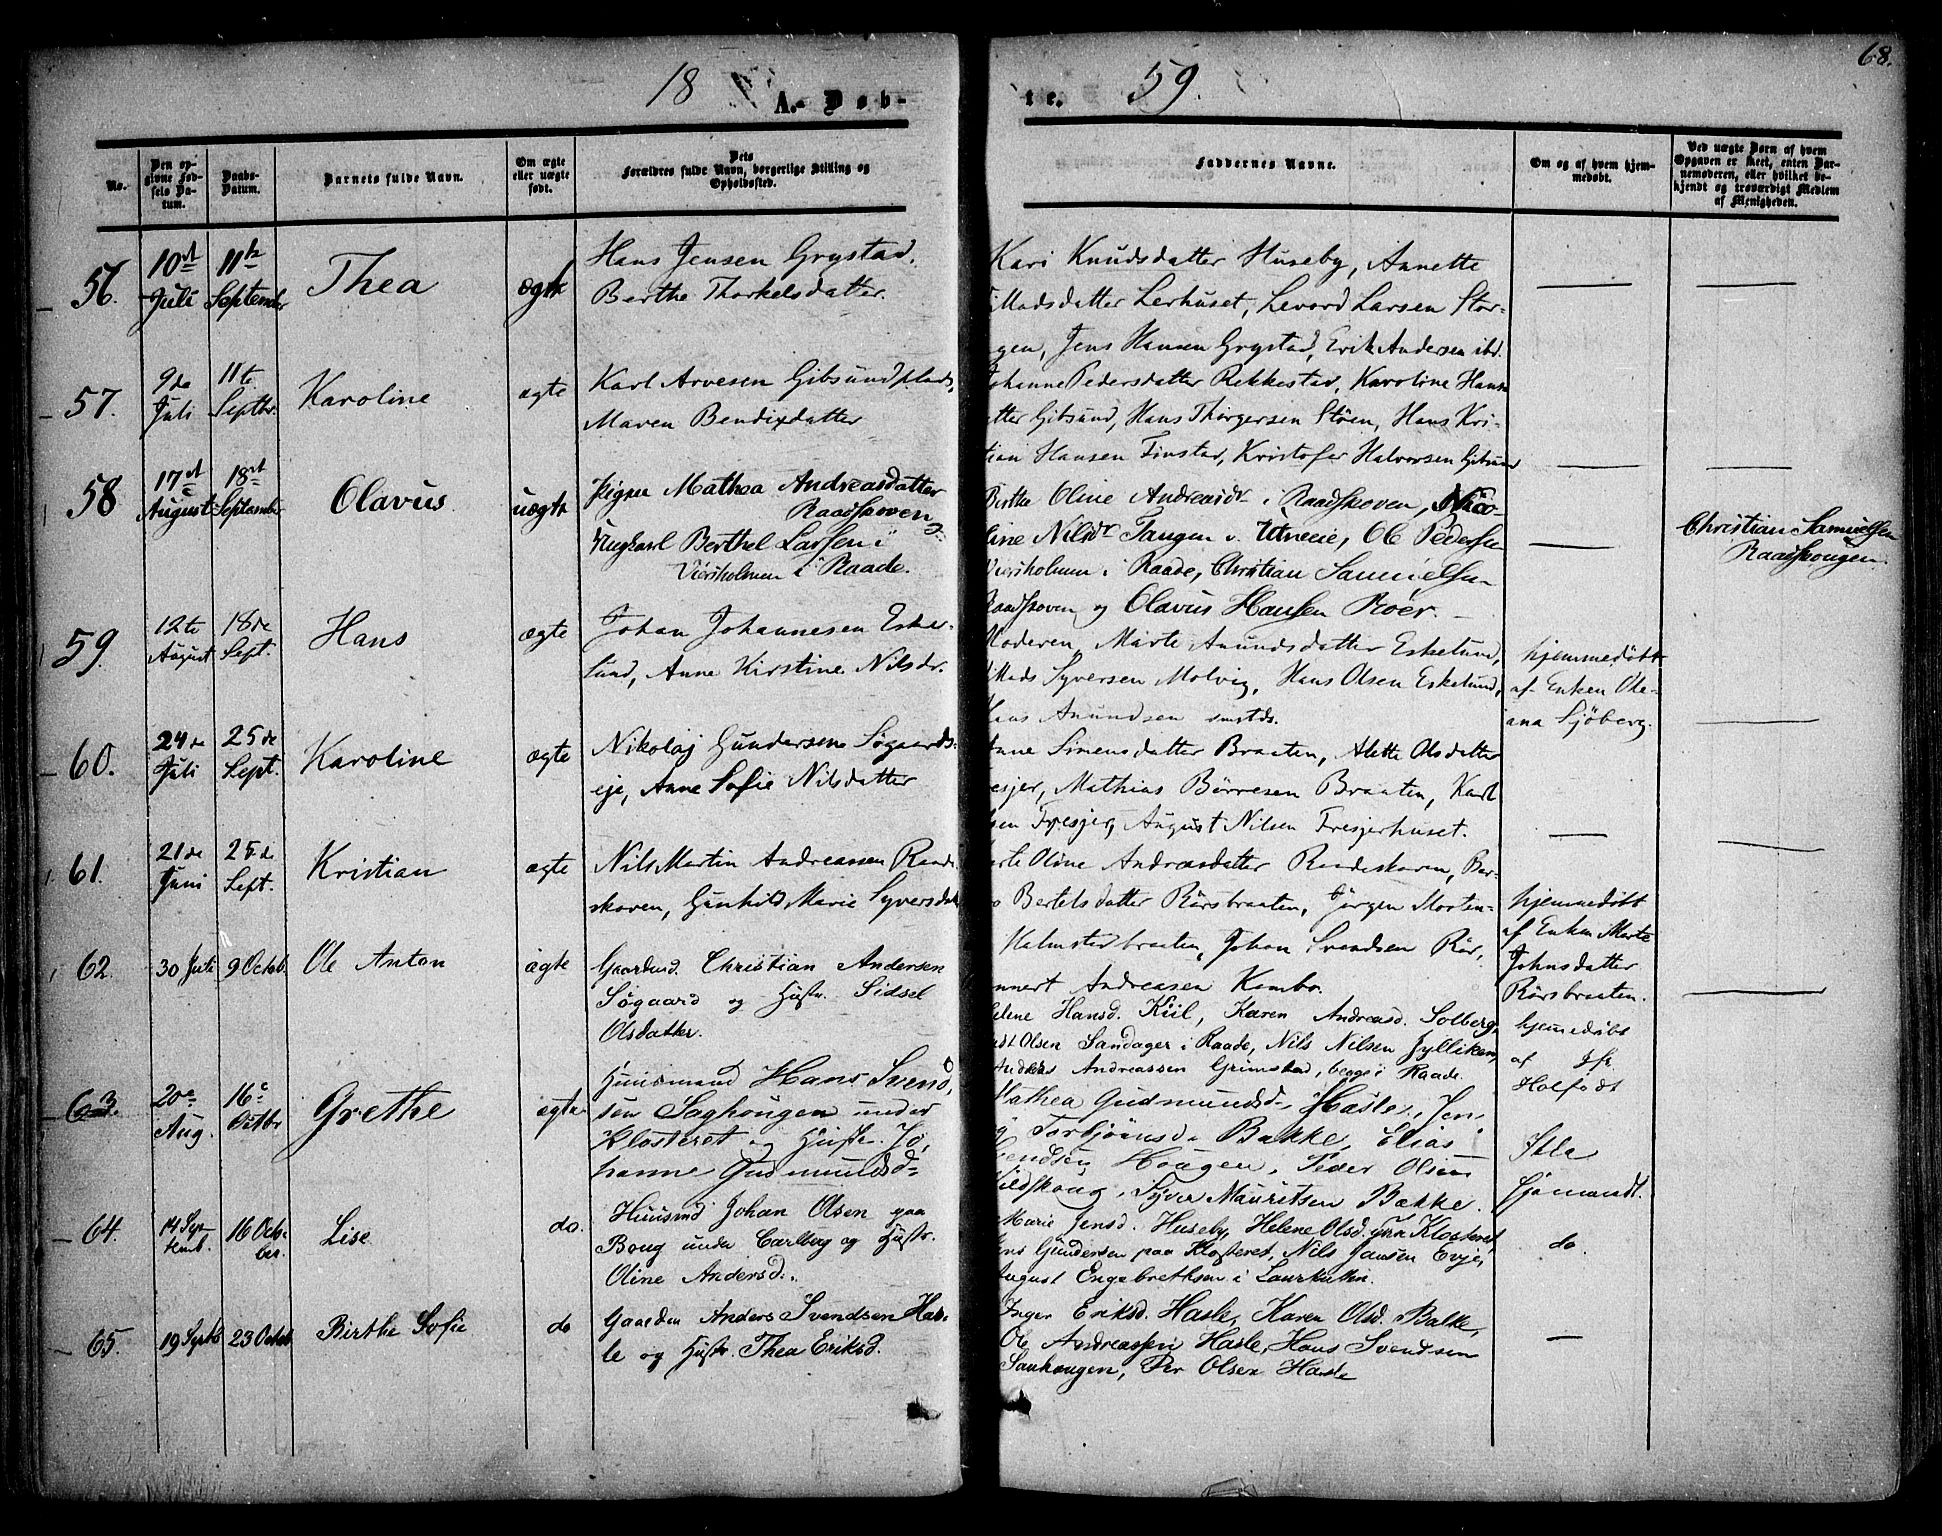 68.
18 59.
A. Døb-
te.
No.
Den op-
givne Fød-
sels Da-
tum.
Daabs-
Datum.
Barnets fulde Navn.
Om ægte
eller uægte
født.
Dets
Forældres fulde Navn, borgerlige Stilling og
Opholdssted.
Faddernes Navne.
Om og af hvem hjem-
medøbt.
Ved uægte Børn af hvem
Opgaven er skeet, enten Bar-
nemoderen, eller hvilket be-
kjendt og troværdigt Medlem
af Menigheden.
56.
10de
Juli
11te
September
Thea
ægte
Hans Jensen Grystad,
Berthe Thorkelsdatter.
Kari Knudsdatter Huseby, Annette
Madsdatter Lerhuset, Levord Larsen Stor-
gen, Jens Hansen Grystad, Erik Andersen ibd.
57.
9de
Juli
11te
Septbr.
Karoline
ægte
Karl Arvesen Gibsundplads,
Maren Bendixdatter
Johanne Pedersdatter Rekkestad, Karoline Hans-
atter Gibsund, Hans Thorgersen Støen, Hans Kri-
tian Hansen Finstad, Kristofer Halvorsen Gibsund
58
17de
August
18de
September
Olavus
uægte
Pigen Mathea Andreasdatter
Raadskoven
Ungkarl Berthel Larssen i
Viersholmen i Raade.
Berthe Oline Andreasdr i Raadskoven, Nico-
line Nilsdr Tangen v. Utneeie, Ole Pedersen
Viersholmen i Raade, Christian Samuelsen
Raadskoven og Olavus Hansen Roër.
Christian Samuelsen
Raadskougen.
59.
12te
August
18de
Sept.
Hans
ægte
Johan Johannesen Eske-
lund, Anne Kirstine Nilsdr.
Moderen, Marte Amundsdatter Eskelund,
Mads Syversen Molvig, Hans Olsen Eskelund,
Hans Amundsen smstds.
hjemmedøbt
af Enken Ole-
ana Sjöberg.
60.
24de
Juli
25de
Sept.
Karoline
ægte
Nikolaj Gundersen Søgaards-
eje, Anne Sofie Nilsdatter
Anne Simensdatter Braaten, Alette Olsdatter
esjer, Mathias Börresen Braaten, Karl
sen Fresjer, August Nilsen Fresjerhuset.
61.
21de
Juni
25de
Sept.
Kristian
ægte
Nils Martin Andreassen Raads-
skoven, Gunhild Marie Syversdat
arte Oline Andreasdatter Raadeskoven, Ber-
Bertelsdatter Rörsbraaten, Jørgen Morten-
Halmstadbraaten, Johan Svendsen Rör,
nnert Andreasen Kambo.
hjemmedöbt
af Enken Marte
Johnsdatter
Rörsbraaten.
62.
30 Juli
9 Octob.
Ole Anton
ægte
Gaardmd. Christian Andersen
Søgaard og Hustr. Sidsel
Olsdatter.
elene Hansd. Kiil, Karen Andreasd. Solberg,
dt Olsen Sandager i Raade, Nils Nilsen Jylliken,
Anders Andreassen Grimstad, begge i Raade.
hjemedøbt
af Jfr
Holfodt
63.
20de
Aug.
16de
Octbr
Grethe
ægte
Huusmand Hans Svend-
sen Saghougen under
Klosteret og Hustr. Jo-
hanne Gudmundsd-
Mathea Gudmundsd. Hasle, Jen-
Torbjörnsd. Bakke, Elias
endsen Hougen, Peder Olsen
ildskoug, Syver Mauritsen Bække.
64.
14 Sept-
emb.
16 Octo-
ber.
Lise
do.
Huusmd Johan Olsen paa
Boug under Carlberg og Hustr.
Oline Andersd.
Marie Jensd. Huseby, Helene Olsd. fra Klosteret,
ens Gundersen paa Klosteret, Nils Jansen Evje,
August Engebrethsen i Laurkullen.
do.
65.
19 Septb
23 Octob
Birthe Sofie
do
Gaardm Anders Svendsen Has-
le og Hustr. Thea Eriksd.
Inger Eriksd. Hasle, Karen Olsd. Bakke,
Ole Andreassen Hasle, Hans Svendsen
Sauhougen, Per Olsen Hasle